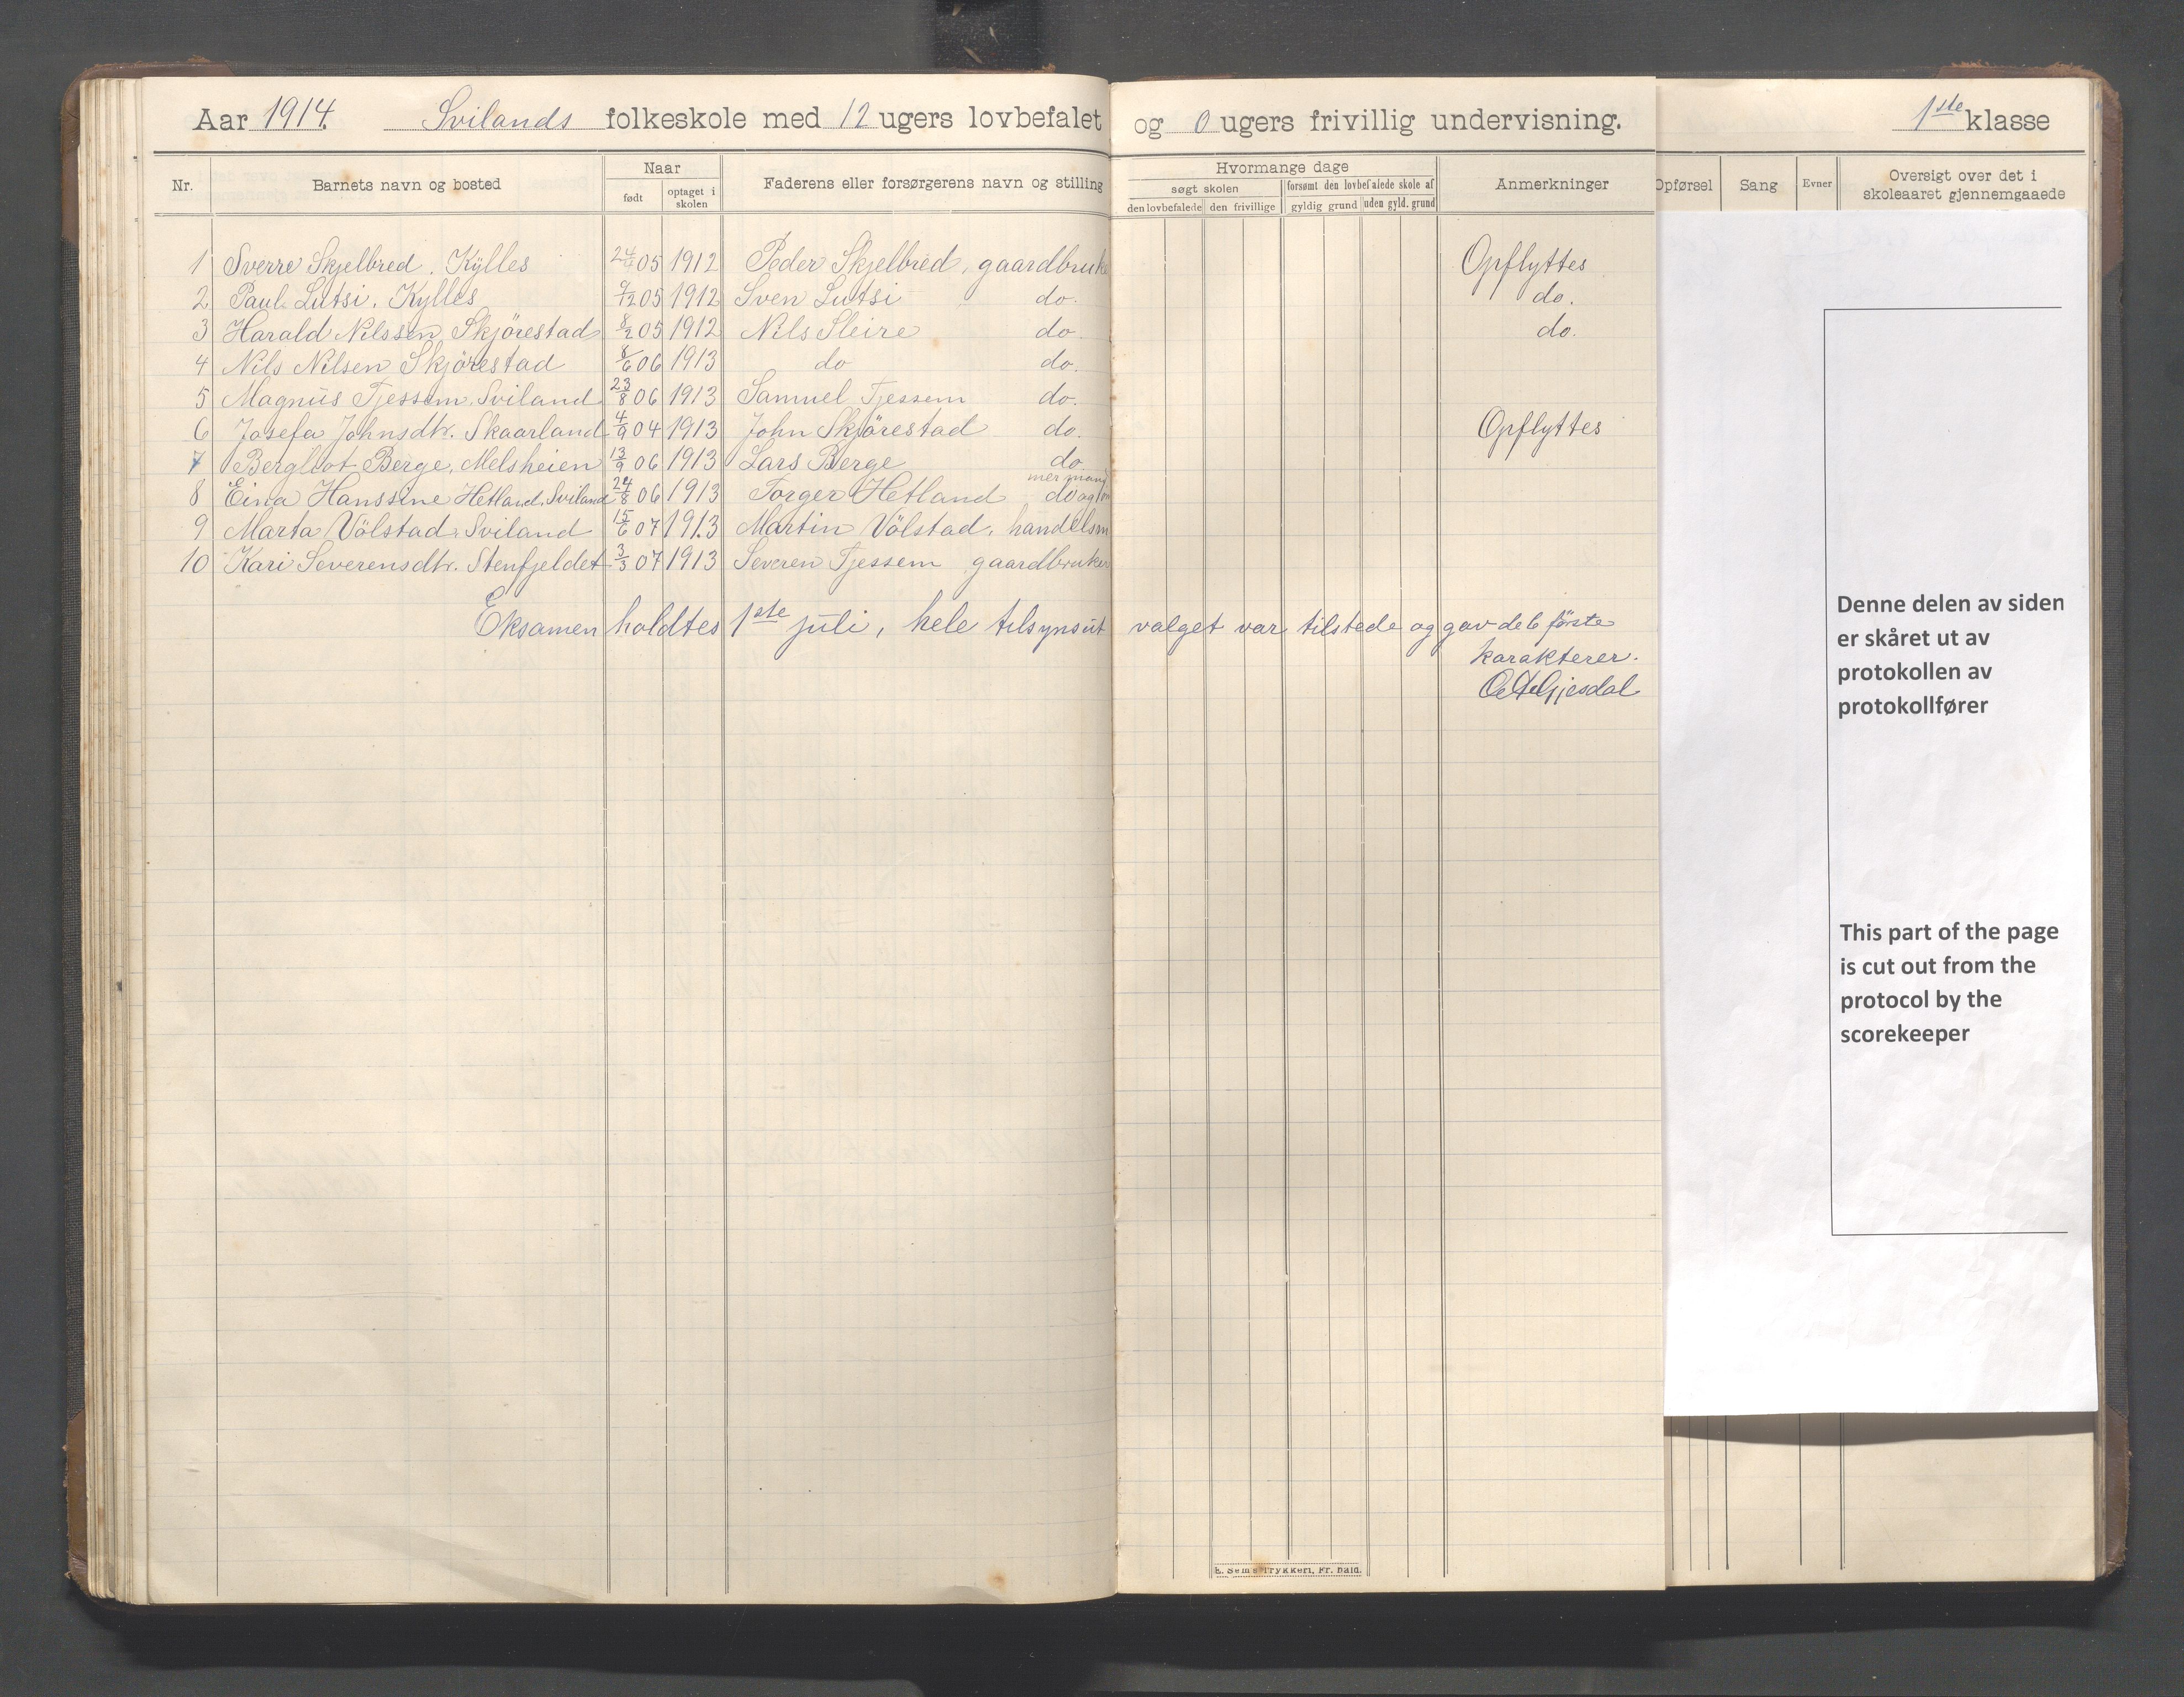 Aar 1914. Svilands folkeskole med 12 ugers lovbefalet og 0 ugers frivillig undervisning. 1ste klasse
Nr. Barnets navn og bosted Naar født optaget i skolen Faderens eller forsørgerens navn og stilling Hvormange dage søgt skolen den lovbefalede den frivillige forsømt den lovbefalede skole af gyldig grund uden gyld. grund Anmerkninger Opførsel Sang Evner Oversigt over det i skoleaaret gjennemgaaede
1 Sverre Skjelbred. Kylles 24/4 05 1912 Peder Skjelbred, gaardbruke Opflyttes
2 Paul Lutsi, Kylles 9/12 05 1912 Sven Lutsi do. do.
3 Harald Nilssen Skjørestad 8/2 05 1912 Nils Sleire do do.
4 Nils Nilsen Skjørestad 8/6 06 1913 do do.
5 Magnus Tjessem, Sviland 23/8 06 1913 Samuel Tjessem do.
6 Josefa Johnsdtr. Skaarland 4/9 04 1913 John Skjørestad do. Opflyttes
7 Bergliot Berge, Melsheien 13/9 06 1913 Lars Berge do
8 Eina Hanssine Hetland, Sviland 24/8 06 1913 Torger Hetland do og
9 Marta Völstad, Sviland 15/6 07 1913 Martin Völstad, handelsm
10 Kari Severensdtr. Stenfjeldet 3/3 07 1913 Severen Tjessem gaardbruker
Eksamen holdtes 1ste juli, hele tilsynsut valget var tilstede og gav de 6 første
karakterer.
Gjesdal
Denne delen av siden
er skåret ut av
protokollen av
protokollfører
This part of the page
is cut out from the
protocol by the
scorekeeper
E. Sem's Trykkeri, Fr. hald.